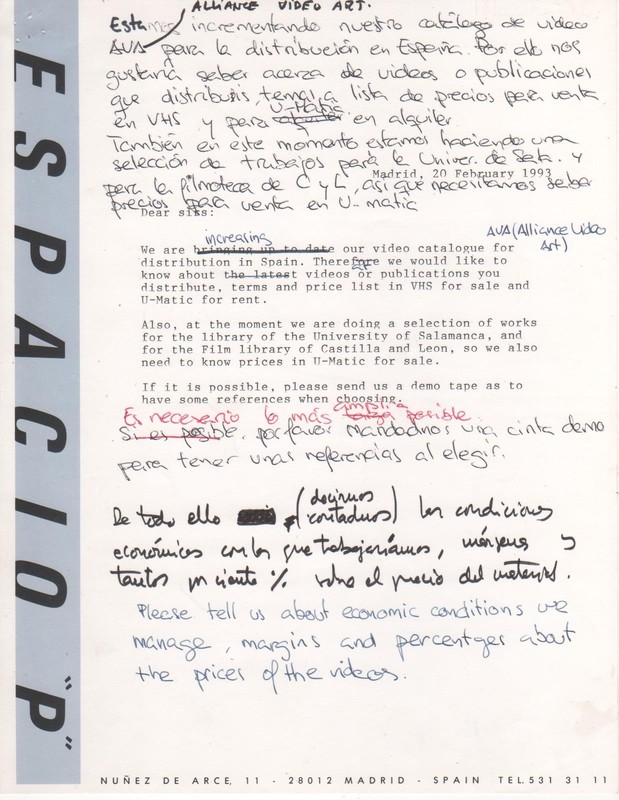 ESPACIO "P"
ALLIANCE VIDEO ART.
Estamos incrementando nuestro catálogo de video
AVA para la distribución en España. Por ello nos
gustaría saber acerca de videos o publicaciones
que distribuis, temas, lista de precios para venta
U-Matic
en VHS y para alquiler en alquiler.
También en este momento estamos haciendo una
selección de trabajos para la Univer. de Sala. y
Madrid, 20 February 1993
para la filmoteca de C y L, así que necesitamos saber
precios para venta en U-matic
Dear sirs:
increasing
AVA (Alliance Video
Art)
We are bringing up to date our video catalogue for
distribution in Spain. Therefore we would like to
know about the latest videos or publications you
distribute, terms and price list in VHS for sale and
U-Matic for rent.
Also, at the moment we are doing a selection of works
for the library of the University of Salamanca, and
for the Film library of Castilla and Leon, so we also
need to know prices in U-Matic for sale.
If it is possible, please send us a demo tape as to
have some references when choosing.
amplia
Es necesario lo más posible
Si es posible, por favor mandadnos una cinta demo
para tener unas referencias al elegir.
De todo ello (decirnos
contadnos) las condiciones
económicas con las que trabajaríamos, márgenes y
tantos por ciento % sobre el precio del material.
Please tell us about economic conditions we
manage, margins and percentges about
the prices of the videos.
NUÑEZ DE ARCE, 11 - 28012 MADRID - SPAIN TEL. 531 31 11